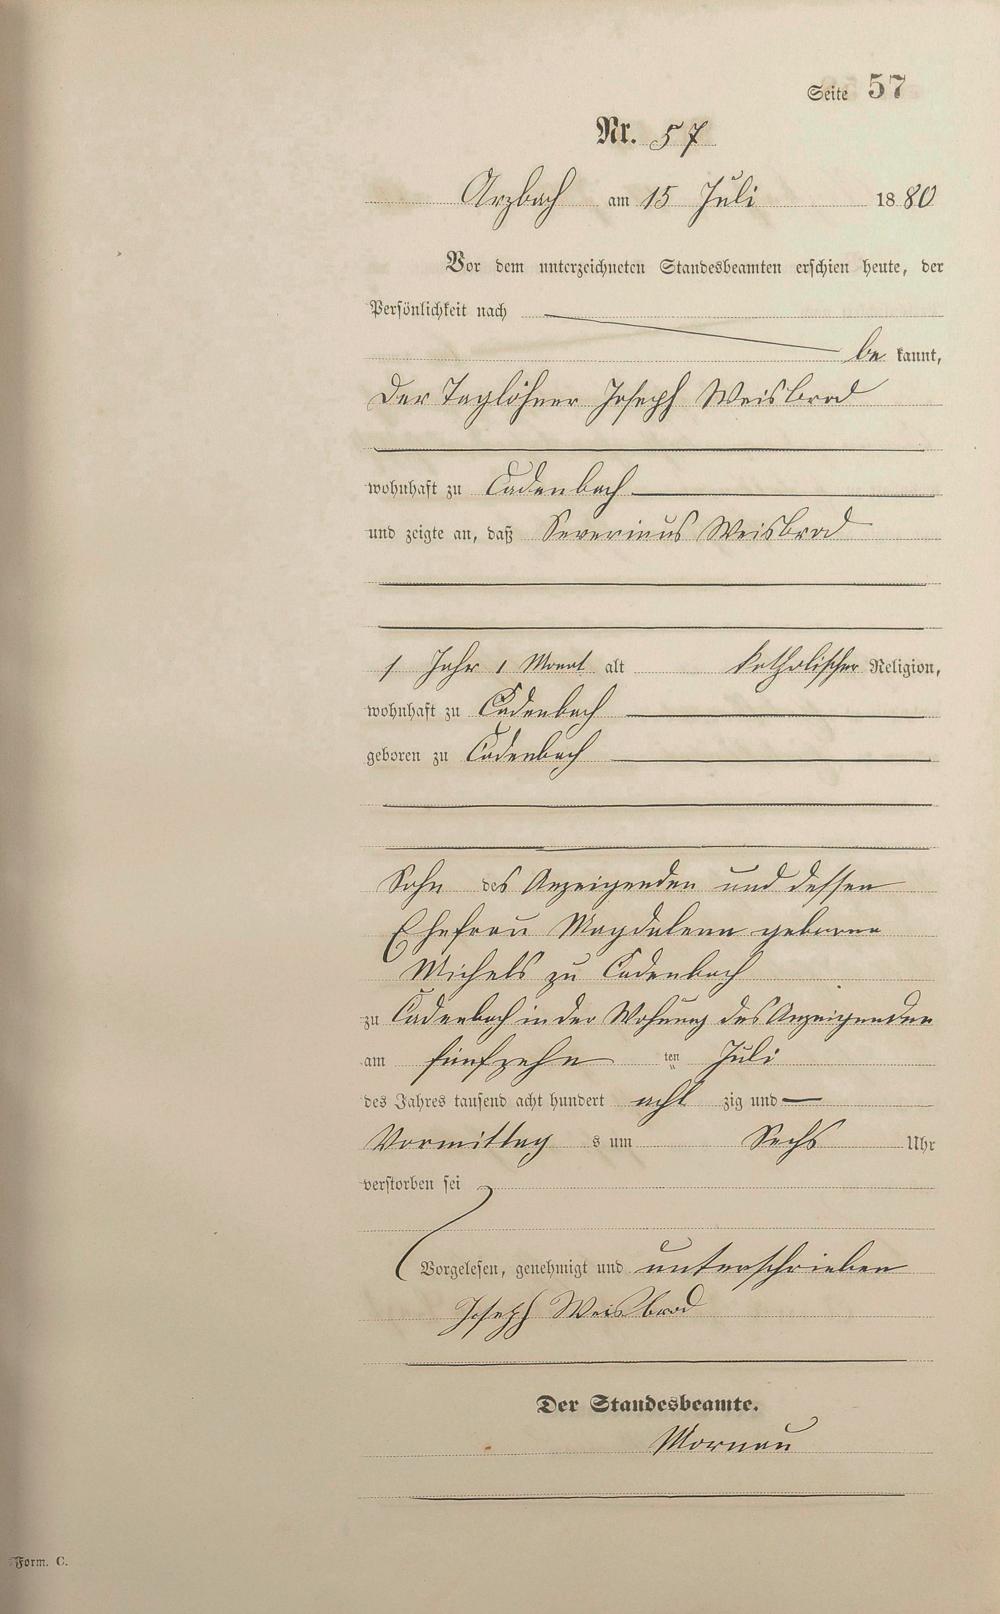 Seite 57
Nr. 57
Arzbach am 15 Juli 1880
Vor dem unterzeichneten Standesbeamten erschien heute, der
Persönlichkeit nach
be kannt,
der Taglöhner Joseph Weisbrod
wohnhaft zu Cadenbach
und zeigte an, daß Severinus Weisbrod
1 Jahr 1 Monat alt katholischer Religion,
wohnhaft zu Cadenbach
geboren zu Cadenbach
Sohn des Anzeigenden und dessen
Ehefrau Magdalena geborene
Michels zu Cadenbach
zu Cadenbach in der Wohnung des Anzeigenden
am fünfzehn ten Juli
des Jahres tausend acht hundert acht zig und
Vormittag s um Sechs Uhr
verstorben sei
Vorgelesen, genehmigt und unterschrieben
Joseph Weisbrod
Der Standesbeamte.
Mornau
Form. C.